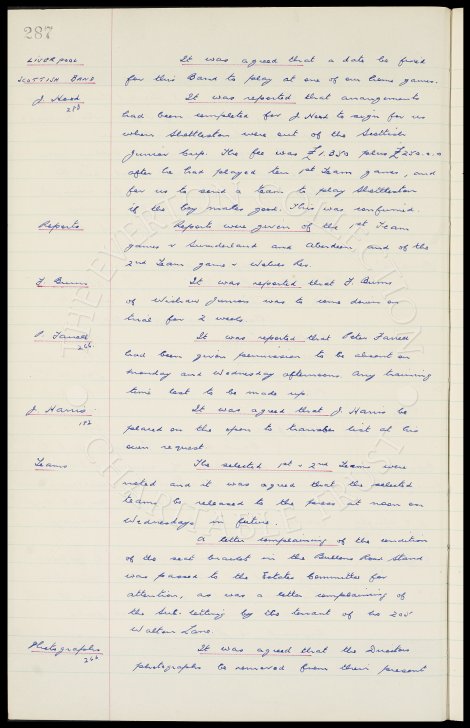 287
LIVERPOOL It was agreed that a date be fixed
SCOTTISH BAND for this Band to play at one of our home games.
J. Hood It was reported that arrangements
288 had been completed for J. Hood to sign for us
when Shettleston were out of the Scottish
Junior Cup. The fee was £1,350 plus £250.0.0
after he had played ten 1st Team games, and
for us to send a team to play Shettleston
if the boy makes good. This was confirmed.
Reports Reports were given of the 1st Team
games v Sunderland and Aberdeen, and of the
2nd Team game v Wolves Res.
F. Burns It was reported that F. Burns
of Wishaw Juniors was to come down on
trial for 2 weeks.
P. Farrell It was reported that Peter Farrell
266. had been given permission to be absent on
Monday and Wednesday afternoons. Any training
time lost to be made up.
J. Harris It was agreed that J. Harris be
182 placed on the open to transfer list at his
own request.
Teams The selected 1st & 2nd Teams were
noted and it was agreed that the selected
teams be released to the press at noon on
Wednesdays in future.
A letter complaining of the condition
of the seat bracket in the Bullens Road Stand
was passed to the Estates Committee for
attention, as was a letter complaining of
the sub-letting by the tenant of no 205
Walton Lane.
Photographs It was agreed that the Directors
266 photographs be removed from their present
THE EVERTON COLLECTION
CHARITABLE TRUST